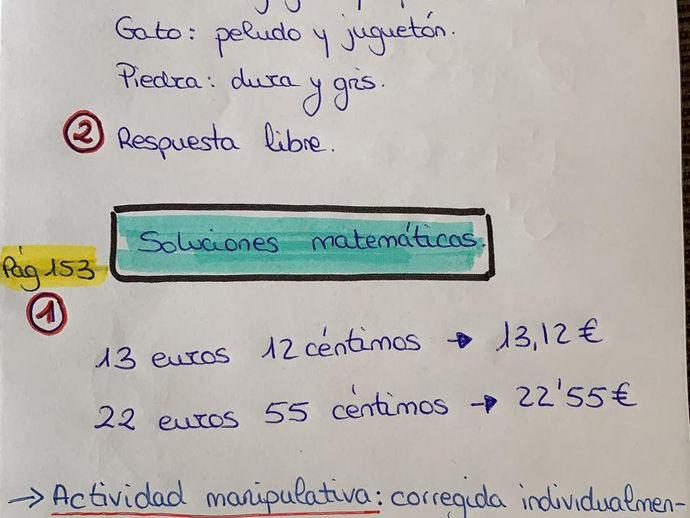 Gato: peludo y juguetón.
Piedra: dura y gris.
2 Respuesta libre.
Soluciones matemáticas.
Pág 153
1
13 euros 12 céntimos → 13,12 €
22 euros 55 céntimos → 22'55 €
→ Actividad manipulativa: corregida individualmen-